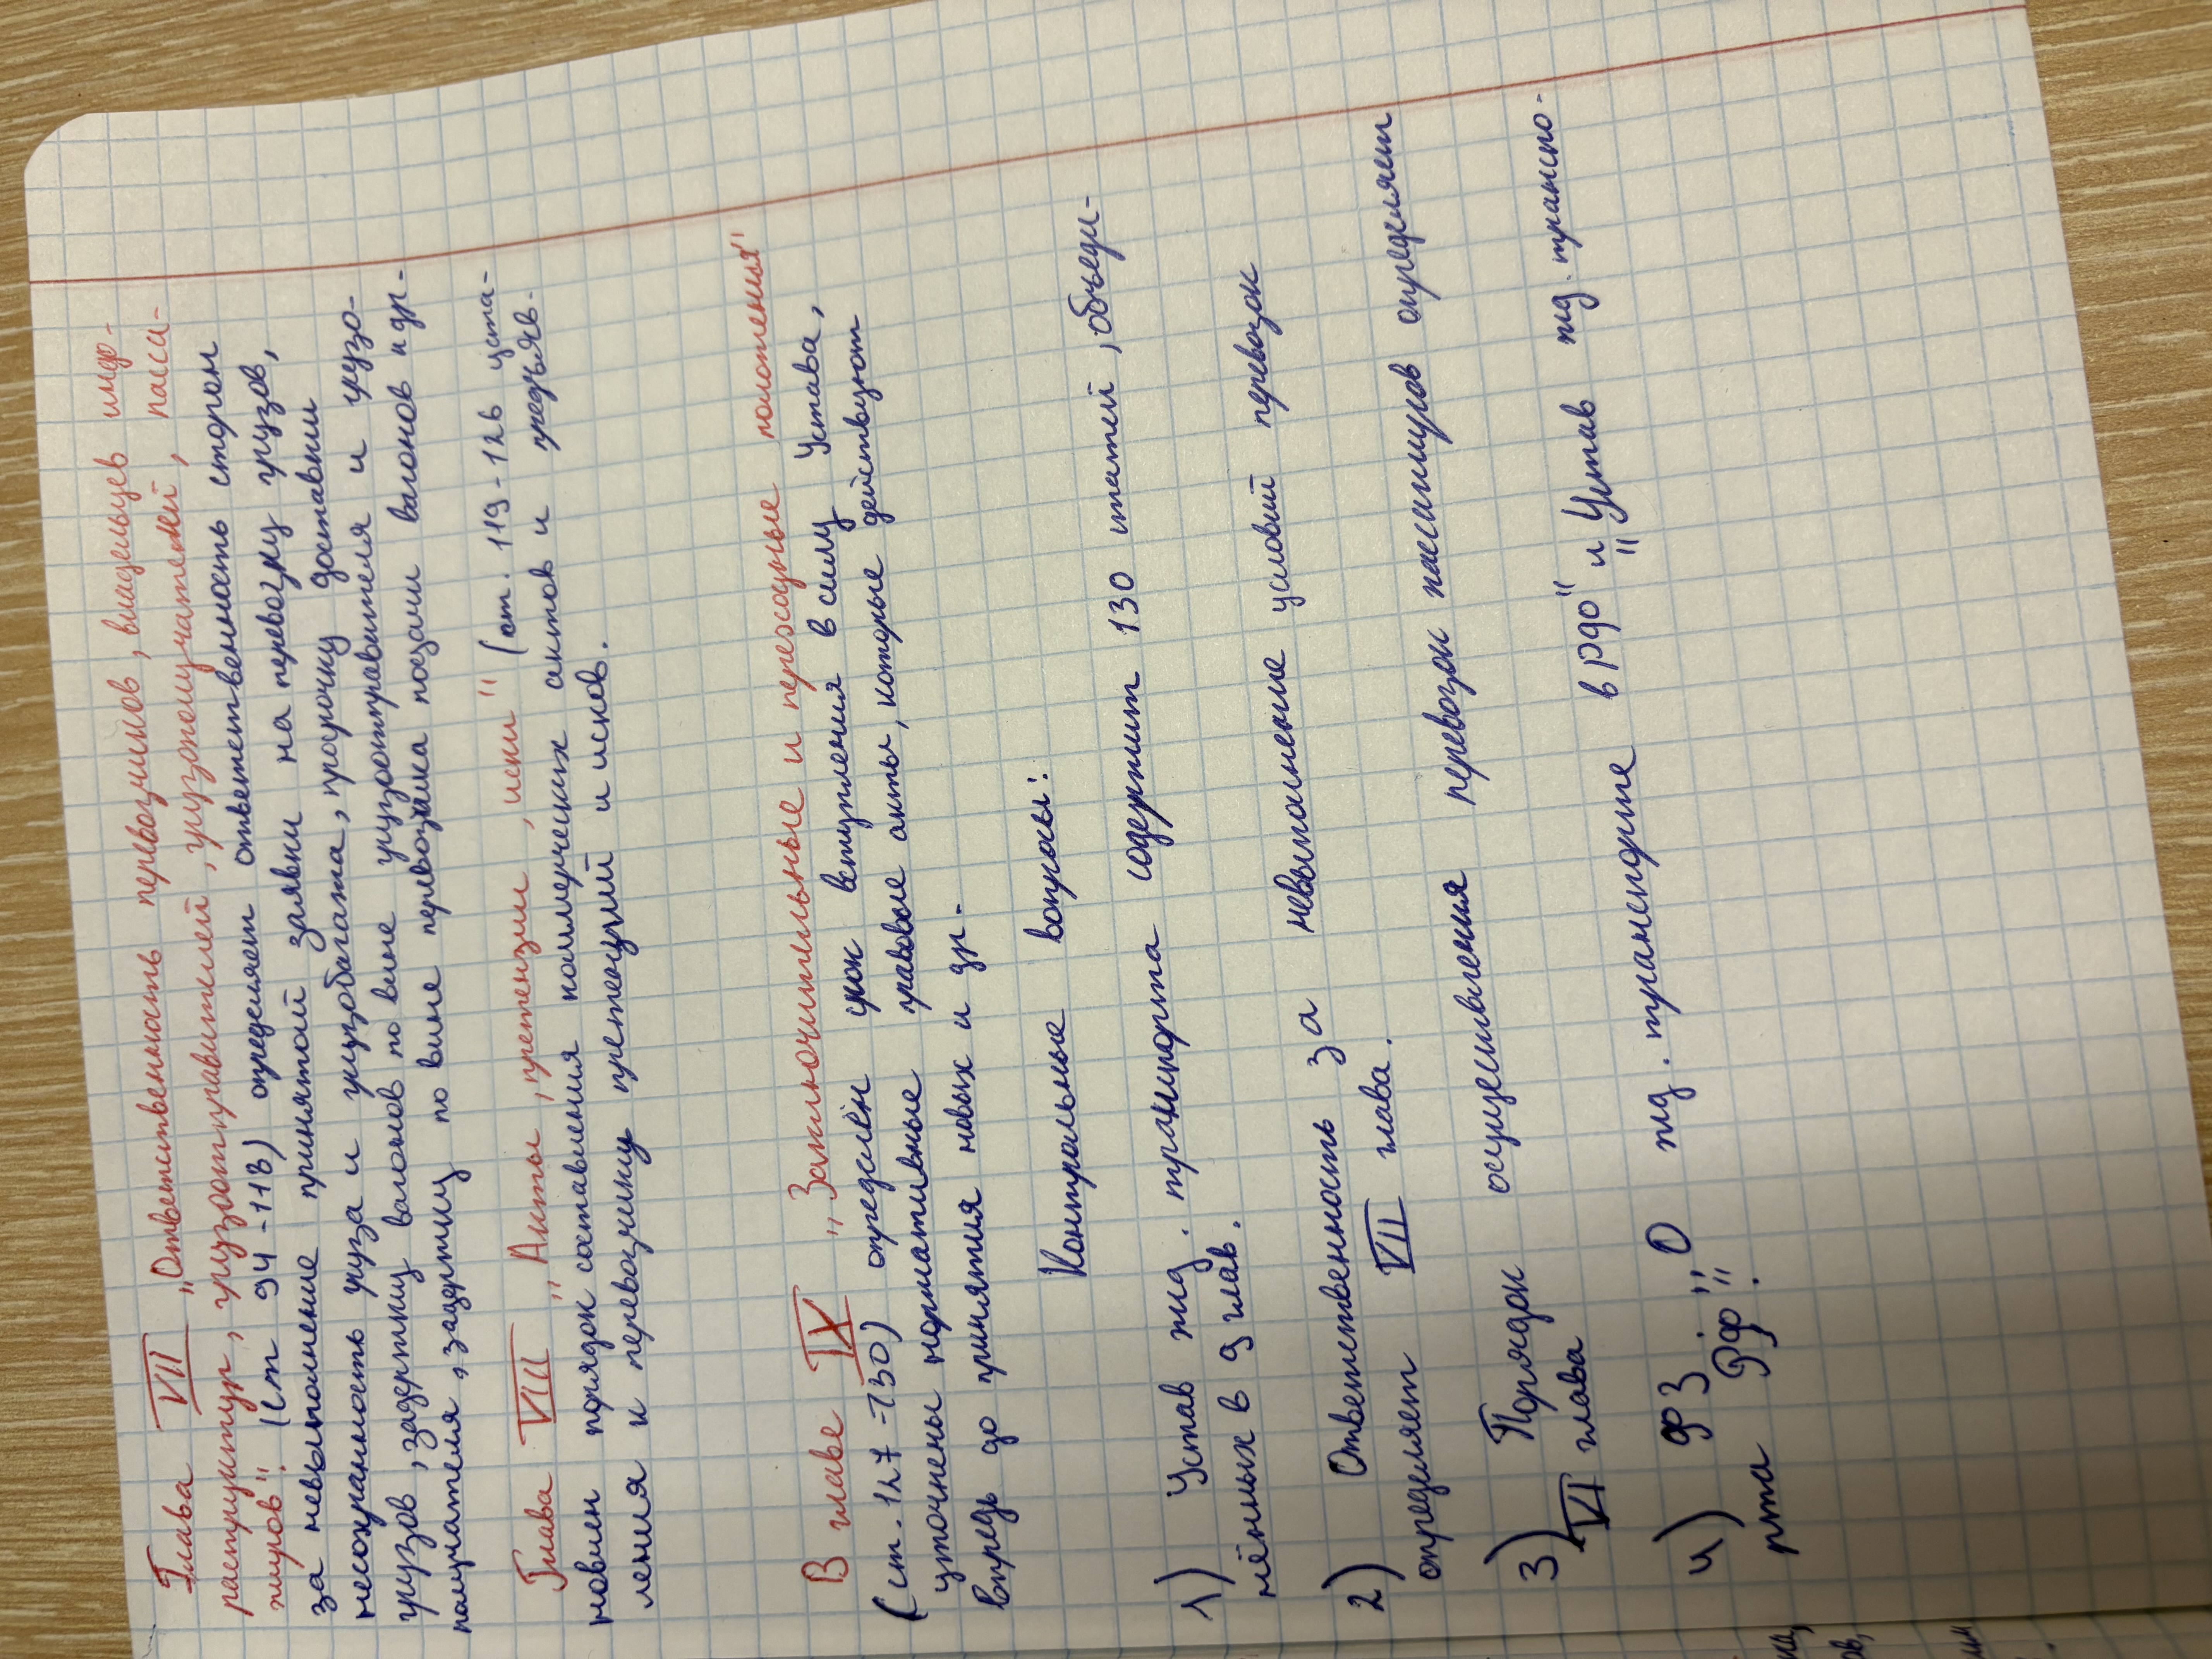 Глава VII "Ответственность перевозчиков, владельцев инфр-
раструктур, грузоотправителей, грузополучателей, пасса-
жиров". (ст 94 - 118) определяет ответственность сторон
за невыполнение принятой заявки на перевозку грузов,
несохранность груза и грузобагажа, просрочку доставки
грузов, задержку вагонов по вине грузоотправителя и грузо-
получателя, задержку по вине перевозчика подачи вагонов и др.
Глава VIII "Акты, претензии, иски" (ст. 119 - 126 уста-
новлен порядок составления коммерческих актов и предъяв-
ления к перевозчику претензий и исков.
В главе IX "Заключительные и переходные положения"
(ст. 127 - 130) определён срок вступления в силу Устава,
уточнены нормативные правовые акты, которые действуют
впредь до принятия новых и др.
Контрольные вопросы:
1) Устав жд. транспорта содержит 130 статей, объеди-
нённых в 9 глав.
2) Ответственность за невыполнение условий перевозок
определяет VII глава.
3) Порядок осуществления перевозок пассажиров определяет
VI глава
4) ФЗ "О жд. транспорте в РФ" и "Устав жд. транспо-
рта РФ".